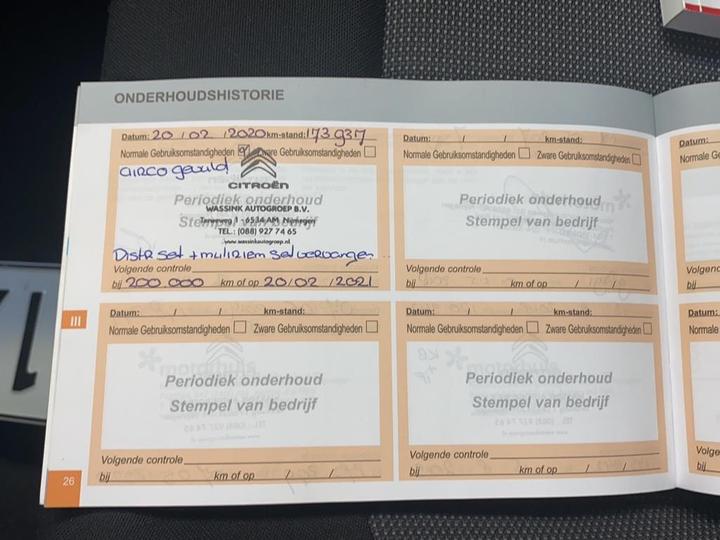 ONDERHOUDSHISTORIE
Datum: 20 / 02 / 2020 km-stand: 173 937
Normale Gebruiksomstandigheden Zware Gebruiksomstandigheden
airco gevuld
CITROËN
Periodiek onderhoud
WASSINK AUTOGROEP B.V.
Stempel van bedrijf
6534 AM Nijmegen
TEL.: (088) 927 74 65
www.wassinkautogroep.nl
Distr set + multiriem set vervangen
Volgende controle
bij 200.000 km of op 20/02 /2021
Datum: / / km-stand:
Normale Gebruiksomstandigheden Zware Gebruiksomstandigheden
Periodiek onderhoud
Stempel van bedrijf
Volgende controle
bij km of op / /
Datum:
Normale G
Volgend
bij
III
Datum: / / km-stand:
Normale Gebruiksomstandigheden Zware Gebruiksomstandigheden
Periodiek onderhoud
Stempel van bedrijf
Volgende controle
bij km of op / /
Datum: / / km-stand:
Normale Gebruiksomstandigheden Zware Gebruiksomstandigheden
Periodiek onderhoud
Stempel van bedrijf
Volgende controle
bij km of op / /
Datum:
Normale
Volge
bij
26